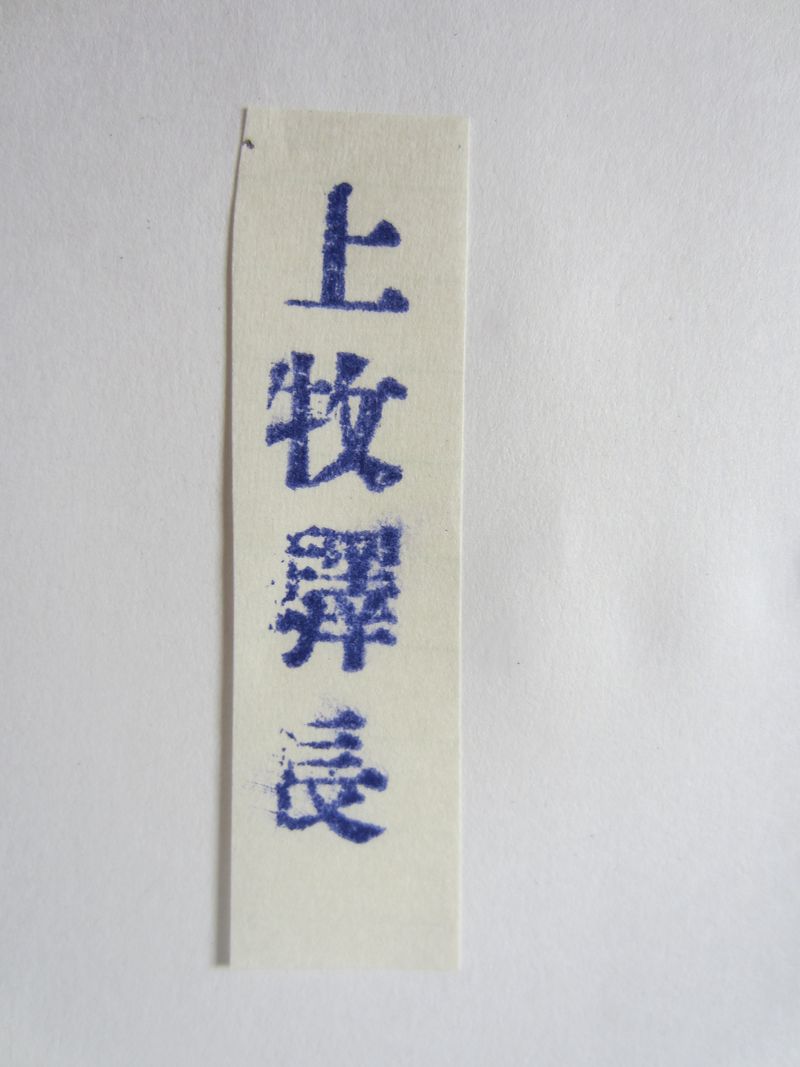 上牧驛長